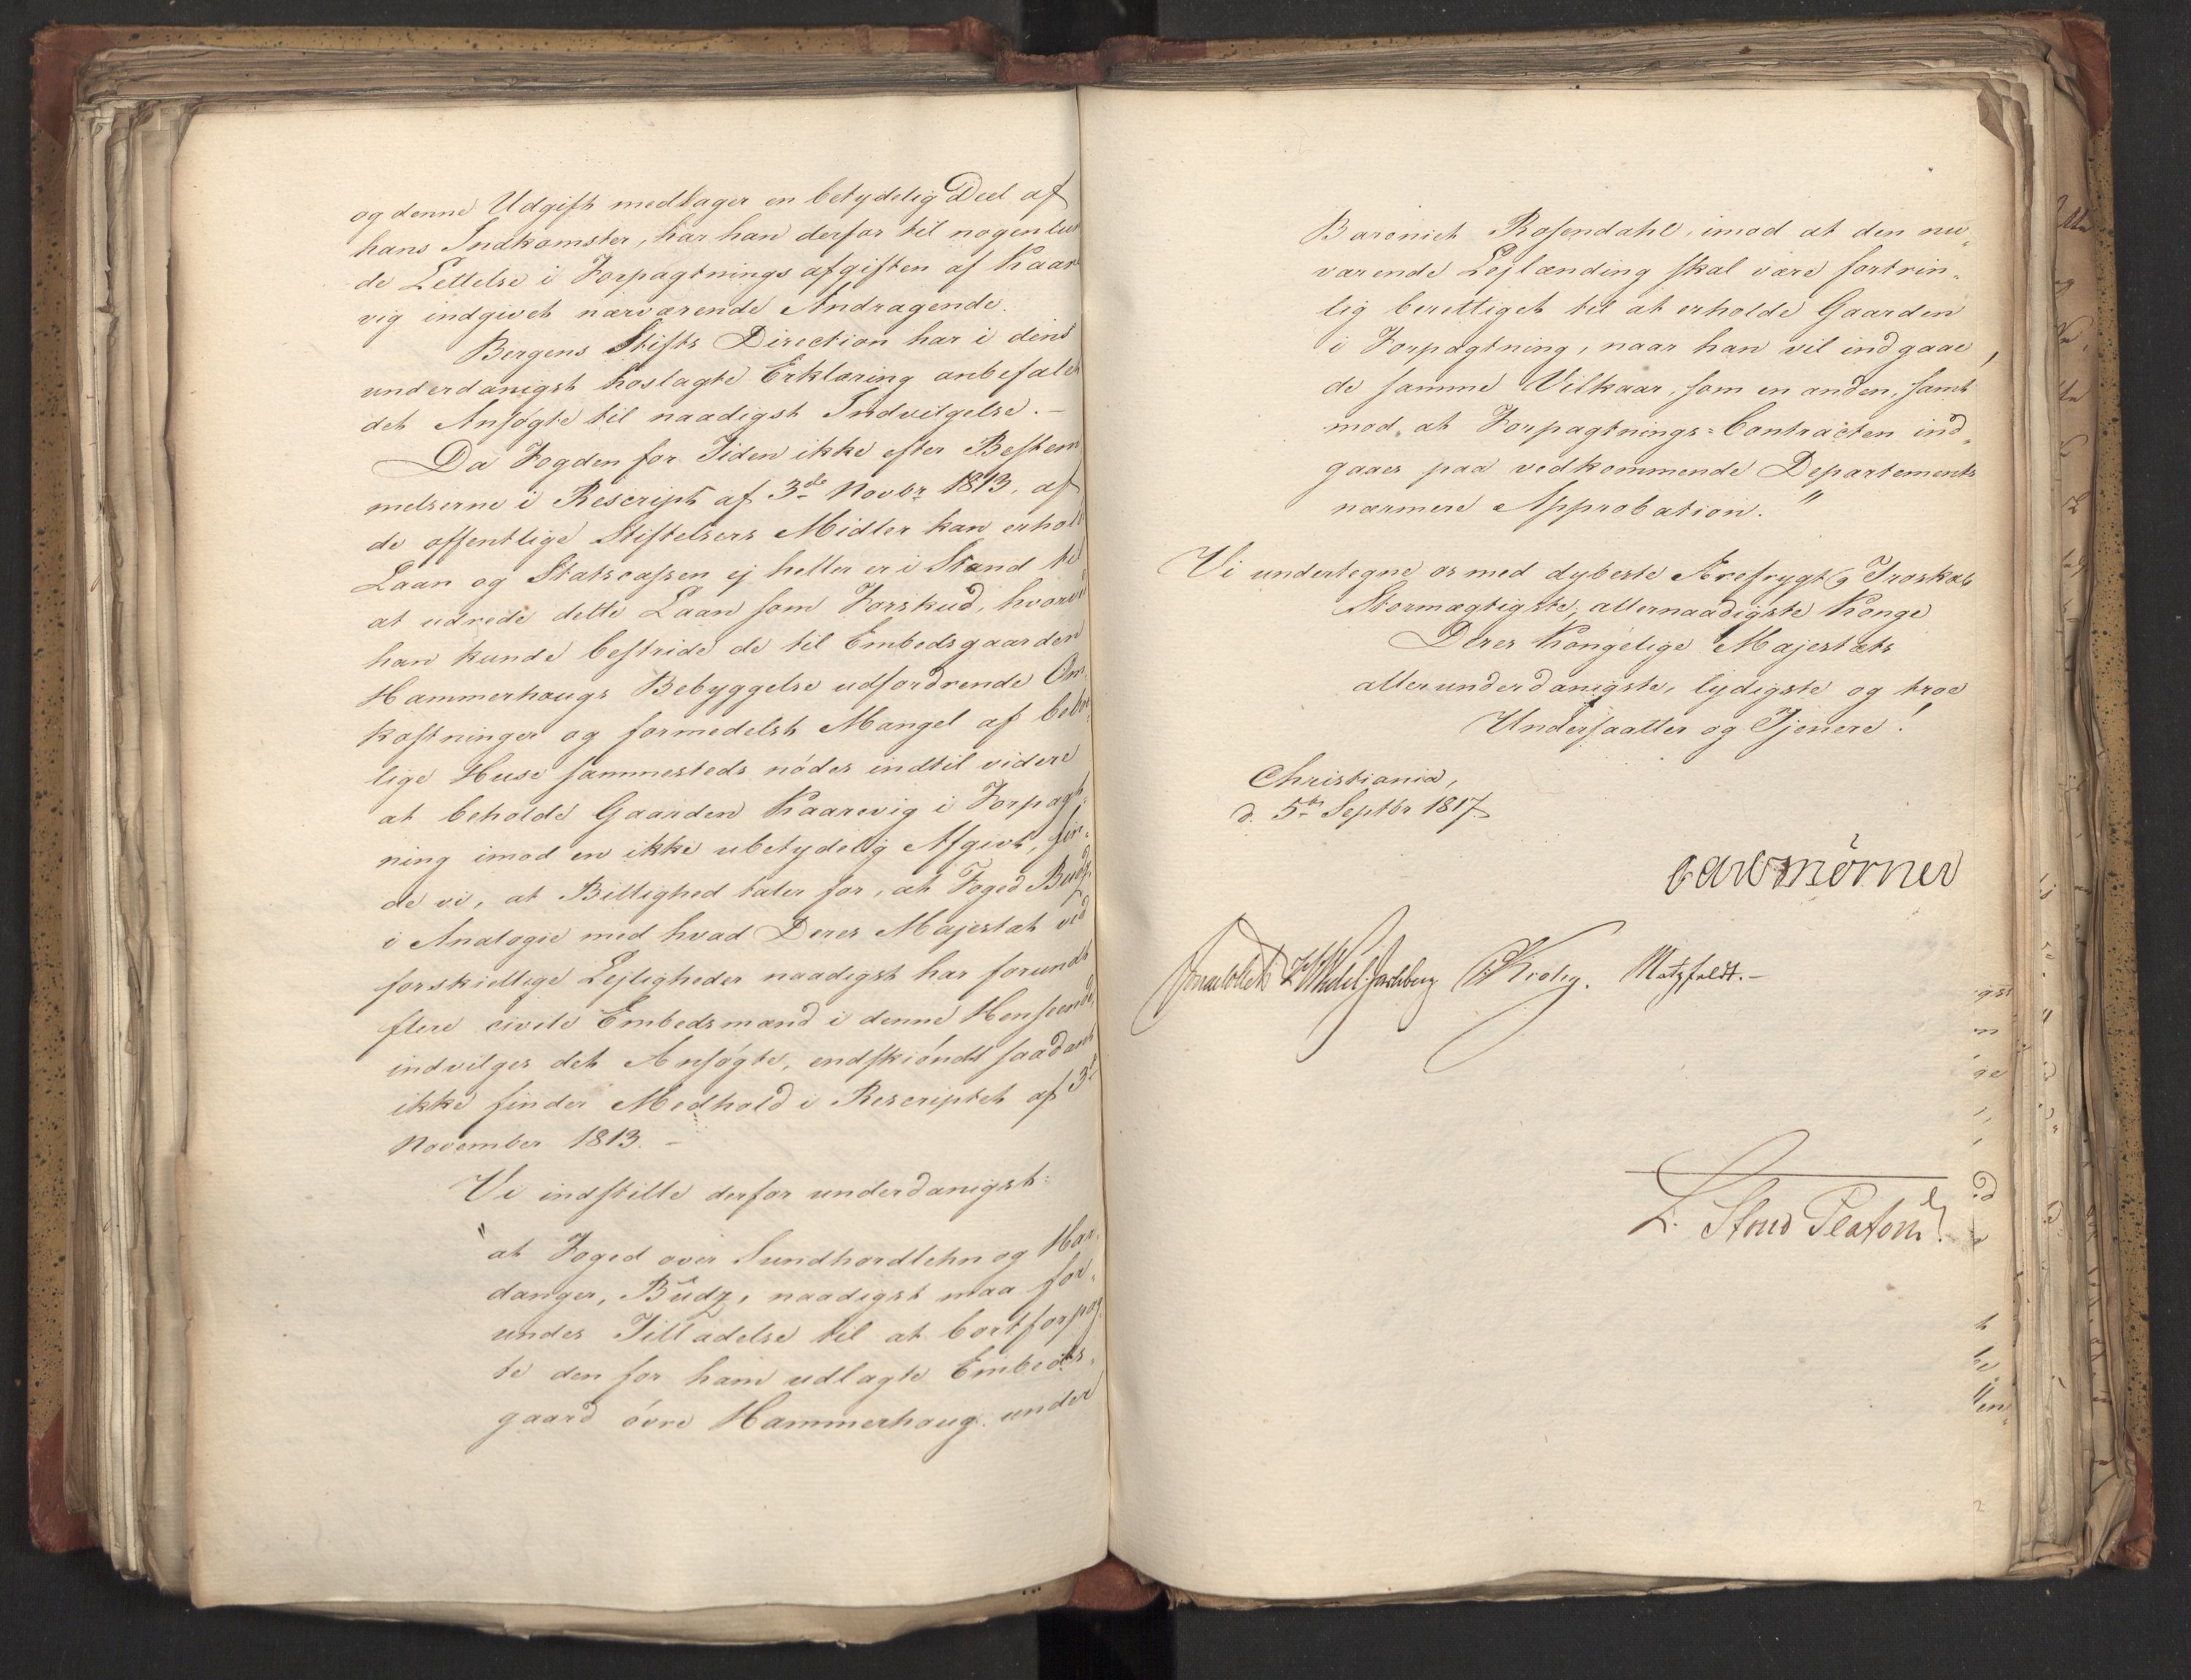 og denne Udgift medtager en betydelig Deel af
hans Indkomster, har han derfor til nogenlun
de Lettelse i Forpagtningsafgiften af Kaar
vig indgivet nærværende Andragende.
Bergens Stifts Direction har i dens
underdanigst hoslagte Erklæring anbefalet
det Ansøgte til naadigst Indvilgelse. –
Da Fogden for Tiden ikke efter Bestem
melserne i Rescript af 3de Novbr 1813, af
de offentlige Stiftelsers Midler kan erhold
Laan og Statscassen ej heller er i Stand til
at udrede dette Laan som Forskud, hvorved
han kunde bestride de til Embedsgaarden
Hammerhougs Bebyggelse udfordrende Om-
kostninger og formedelst Mangel af beboe-
lige Huse sammesteds nödes indtil videre
at beholde Gaarden Kaarevig i Forpagt-
ning imod en ikke ubetydelig Afgivt, fin-
de vi, at Billighed taler for, at Foged Budz,
i Analogie med hvad Deres Majestæt ved
forskiellige Lejligheder naadigst har forundt
flere civile Embedsmænd i denne Henseende,
indvilges det Ansøgte, endskiöndt saadant
ikke finder Medhold i Rescriptet af 3de
November 1813. –
Vi indstille derfor underdanigst:
"at Foged over Sundhordlehn og Har-
danger, Budz, naadigst maa for-
undes Tilladelse til at bortforpag-
te den for ham udlagte Embeds-
gaard övre Hammerhoug under
Baroniet Rosendahl, imod at den nu-
værende Lejlænding skal være fortrin-
lig berettiget til at erholde Gaarden
i Forpagtning, naar han vil indgaae
de samme Vilkaar, som en anden, samt
mod, at Forpagtnings-Contracten ind-
gaaes paa vedkommende Departements
nærmere Approbation."
Vi undertegne os med dybeste Ærefrygt og Troskab
Stormægtigste, allernaadigste Konge
Deres Kongelige Majestæts
allerunderdanigste, lydigste og troe
Undersaatter og Tjenere!
Christiania,
d. 5te Septbr 1817
Carl Mörner
JCollett Wedel Jarlsberg Krohg. Motzfeldt. –
L. Stoud Platou